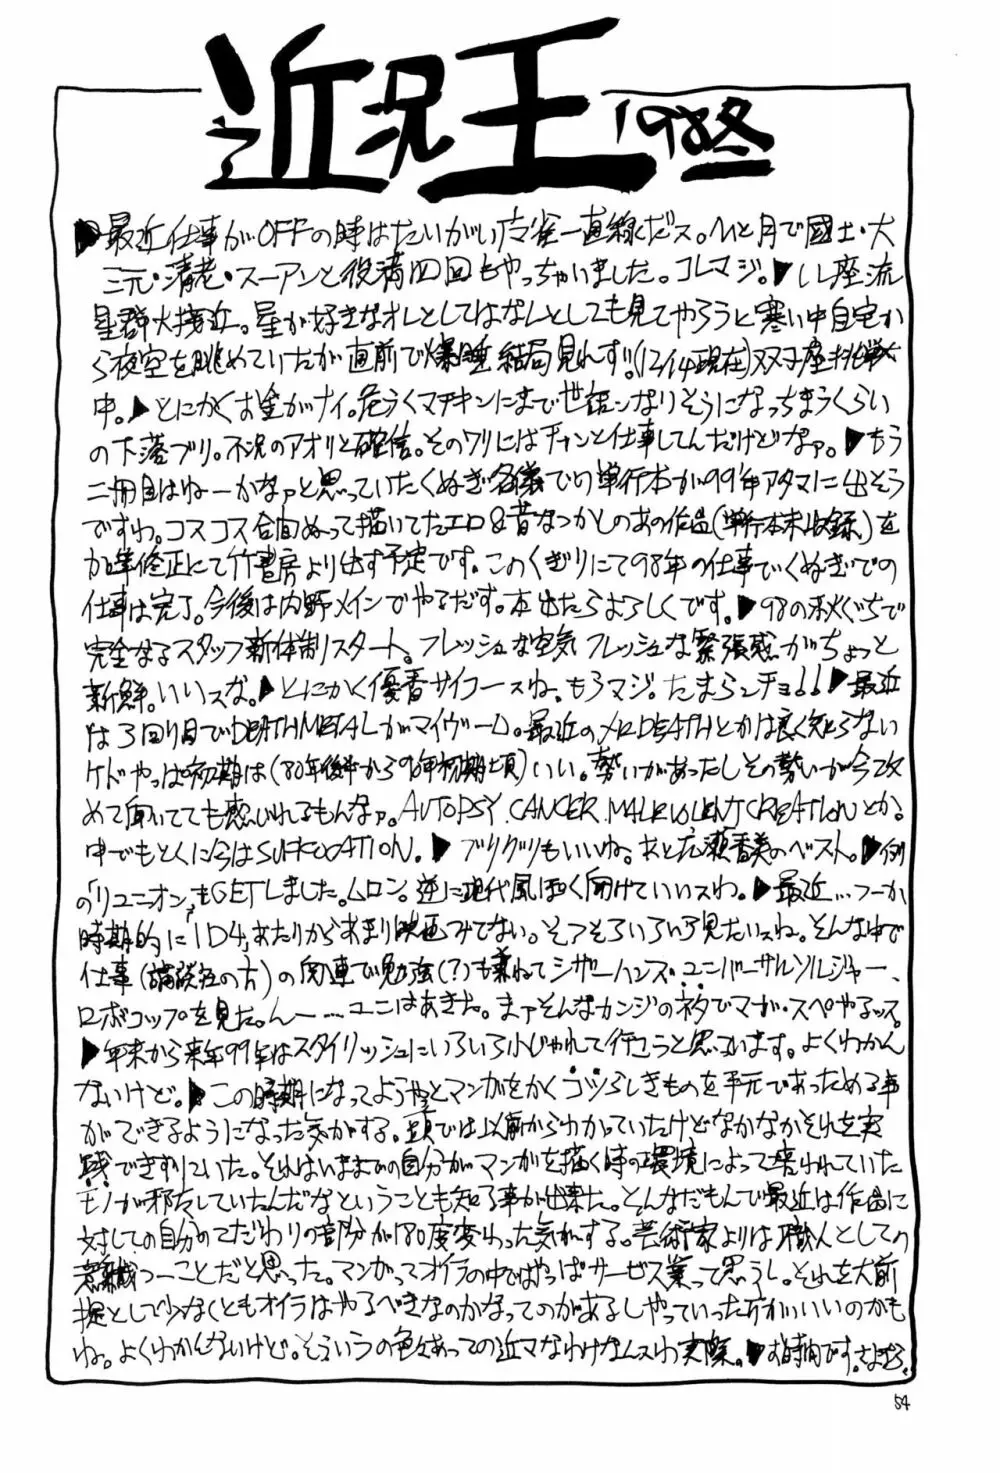 近況王 1998冬
▶最近仕事がOFFの時はたいがい麻雀一直線だス。ひと月で國士・大
三元・清老・スーアンと役満四回もやっちゃいました。コレマジ。▶しし座流
星群大接近。星が好きなオレとしてはなんとしても見てやろうと寒い中自宅か
ら夜空を眺めていたが直前で爆睡 結局見れず!!(12/14現在)双子座挑戦
中。▶とにかくお金がナイ。危うくマチキンにまで世話ンなりそうになっちまうくらい
の下落ブリ。不況のアオリと確信。そのワリにはチャンと仕事してんだけどなァ。▶もう
二冊目はねーかなァと思っていたくぬぎ名義での単行本が99年アタマに出そう
ですわ。コスコス合間ぬって描いてたエロ&昔なつかしのあの作品(単行本未収録)を
加筆修正にて竹書房より出す予定です。このくぎりにて98年の仕事でくぬぎでの
仕事は完了。今後は内野メインでやるだす。本出たらよろしくです。▶98の秋ぐちで
完全なるスタッフ新体制スタート。フレッシュな空気 フレッシュな緊張感がちょっと
新鮮。いいスな。▶とにかく優香サイコースね。もうマジ。たまらンチョ!!▶最近
は3回り目でDEATHMETALがマイブーム。最近のメロDEATHとかは良く知らない
ケドやっぱ初期は(80年後半から90年初期頃)いい。勢いがあったしその勢いが今改
めて聞いてても感じいれるもんなァ。AUTOPSY.CANCER.MALEVOLENTCREATIONとか。
中でもとくに今はSUFFOCATION。▶ブリグリもいいね。あと広瀬香美のベスト。▶例
の「リユニオン」もGETしました。ムロン。逆に現代風ぽく聞けていいスわ。▶最近…フーか
時期的に「ID4」あたりからあまり映画みてない。そろそろいろいろ見たいスね。そんな中で
仕事(講談社の方)の関連で勉強(?)も兼ねてシザーハンズ・ユニバーサルソルジャー、
ロボコップを見た。んー…ユニはあきた。まァそんなカンジのネタでマガ・スペやるッス。
▶年末から来年99年はスタイリッシュにいろいろ小じゃれて行こうと思っています。よくわかん
ないけど。▶この時期になってようやくマンガをかくコツらしきものを手元であっためる事
ができるようになった気がする。頭では以前からわかっていたけどなかなかそれを実
践できずにいた。それはいままでの自分がマンガを描く時の環境によって培われていた
モノが邪魔していたんだなということも知る事が出来た。とんなだもんで最近は作品に
対しての自分のこだわりの部分が180度変わった気がする。芸術家よりは職人としての
意識つーことだと思った。マンガってオイラの中ではやっぱサービス業って思うし。それを大前
提として少なくともオイラはやるべきなのかなってのがあるしやっていった方がいいのかも
ね。よくわかんないけど。そういうの色々あっての近マなわけなんスわ実際。▶お時間です。さよなら。
54